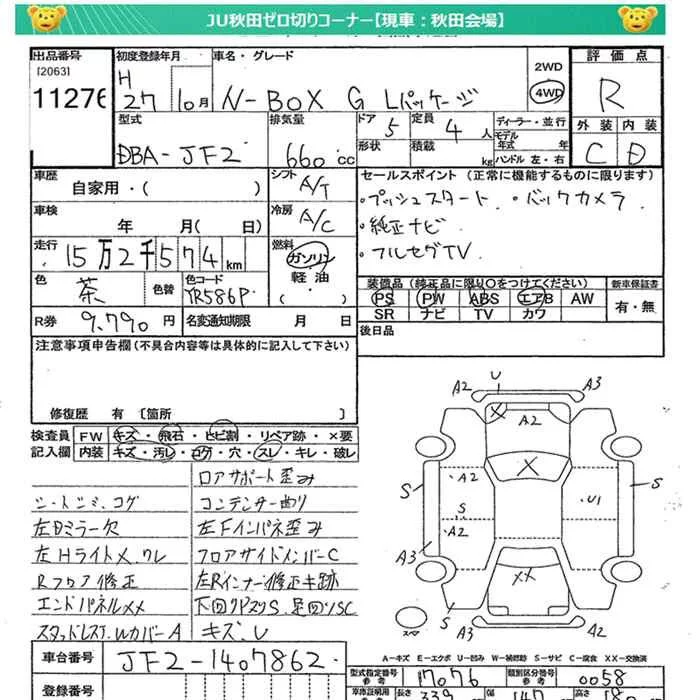 JU秋田ゼロ切りコーナー【現車：秋田会場】
出品番号 初度登録年月 車名・グレード 2WD 評価点
[2063] H 4WD
11276 27 10月 N-BOX G Lパッケージ R
型式 排気量 ドア 5 定員 4 人 ディーラー・並行 外装 内装
DBA-JF2 660cc 形状 積載 kg モデル年式 年 ハンドル 左・右 C D
車歴 シフト セールスポイント (正常に機能するものに限ります)
自家用・( ) A/T ・プッシュスタート ・バックカメラ
車検 冷房 ・純正ナビ
年 月( 日) A/C ・フルセグTV
走行 燃料
15万2千574km ガソリン
軽油
・( )
色 茶 色替 色コード YR586P 装備品 (純正品に限り○をつけてください) 新車保証書
PS PW ABS エアB AW 有・無
SR ナビ TV カワ
R券 9,790円 名変通知期限 月 日 後日品
注意事項申告欄 (不具合内容等は具体的に記入して下さい)
修復歴 有 [箇所 ]
検査員 FW キズ・飛石・ヒビ割・リペア跡・×要
記入欄 内装 キズ・汚レ・コゲ・穴・スレ・キレ・破レ
ロアサポート歪み
シートシミ、コゲ コンデンサー曲り
左Dミラー欠 左Fインパネ歪み
左Hライトメ、ワレ フロアサイドメンバーC
Rフロア修正 左Rインナー修正キ跡
エンドパネルXX 下回りパスリS、足回りSC
スタッドレス、WカバーA キズ、U
U
A2 A3
X A2
X
A2
S S U1 S
A2
A3
XX
S
A3 A2
A=キズ E=エクボ U=凹み W=補修跡 S=サビ C=腐食 XX=交換済
車台番号 JF2-1407862
登録番号
型式指定番号 17076 類別区分番号 0058
長さ 339 幅 147 高さ 180